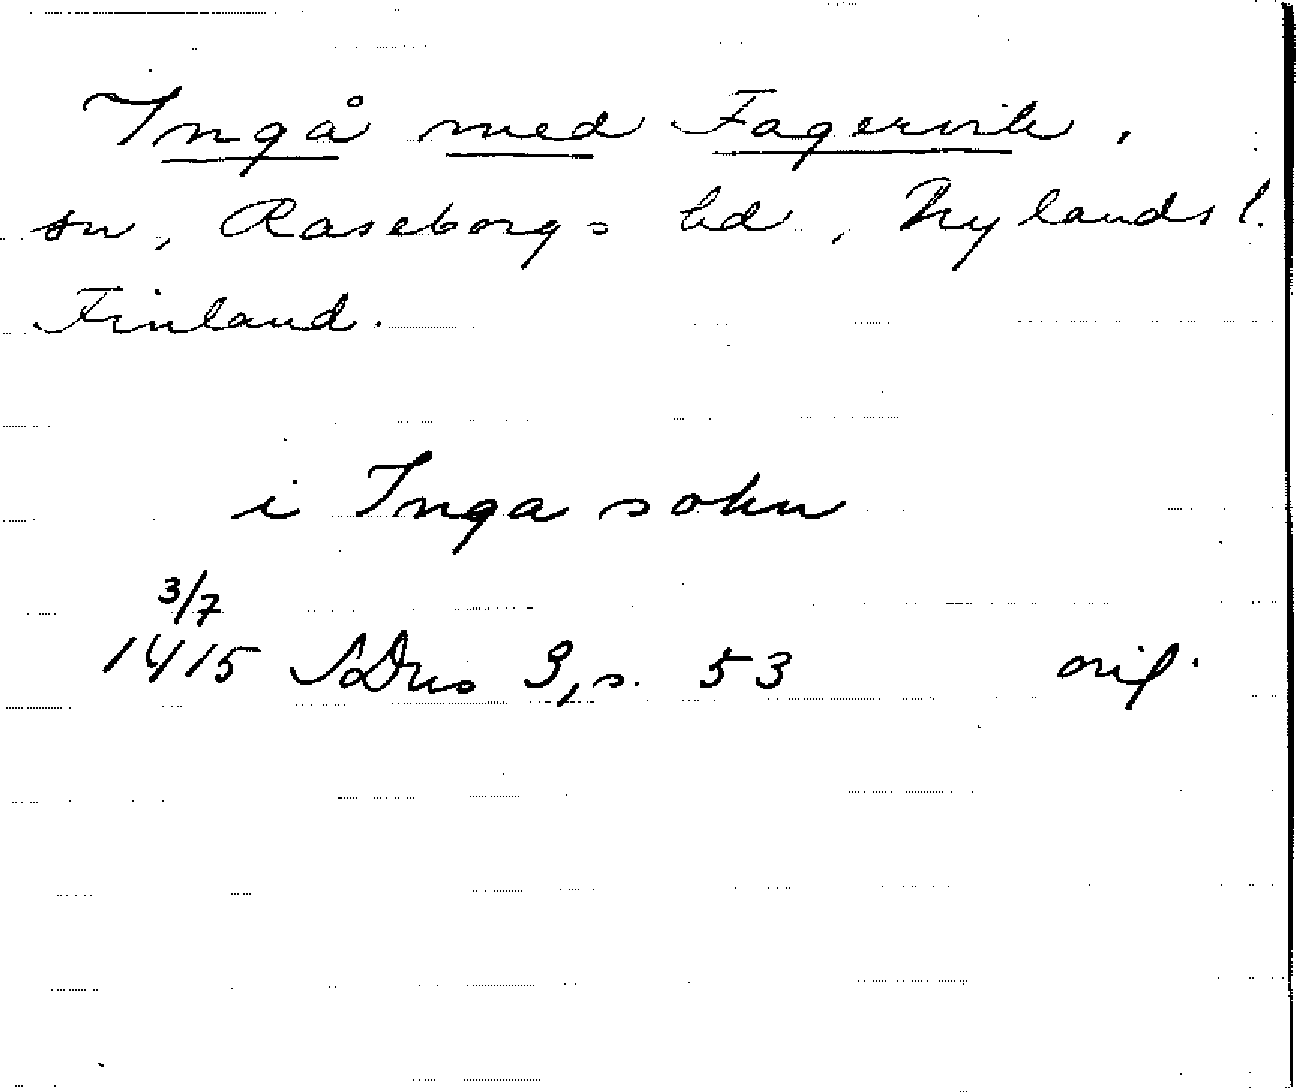 Ingå med Fagervik,
sn, Raseborgs hd, Nylands l.
Finland.
i Inga sokn
3/7
1415 SDns 3, s. 53 orig.